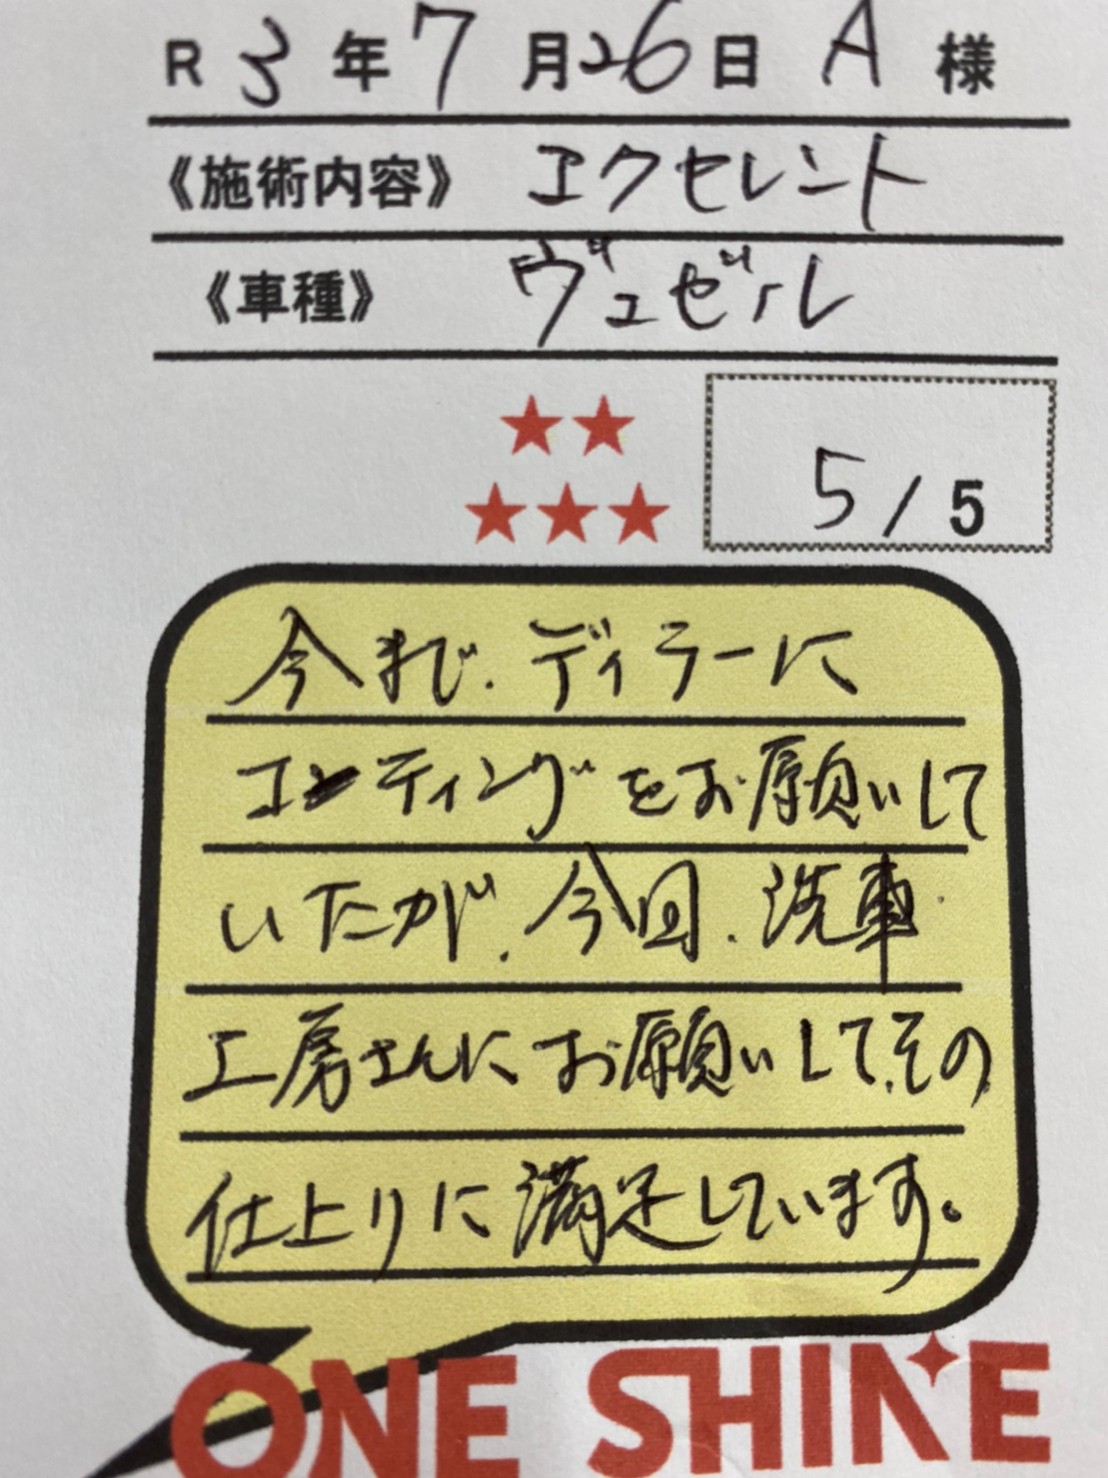 R 3 年 7 月 26 日 A 様
《施術内容》 エクセレント
《車種》 ヴェゼル
★★
★★★
5 / 5
今まで、ディラーに
コーティングをお願いして
いたが、今回、洗車
工房さんにお願いして、その
仕上りに満足しています。
ONE SHINE